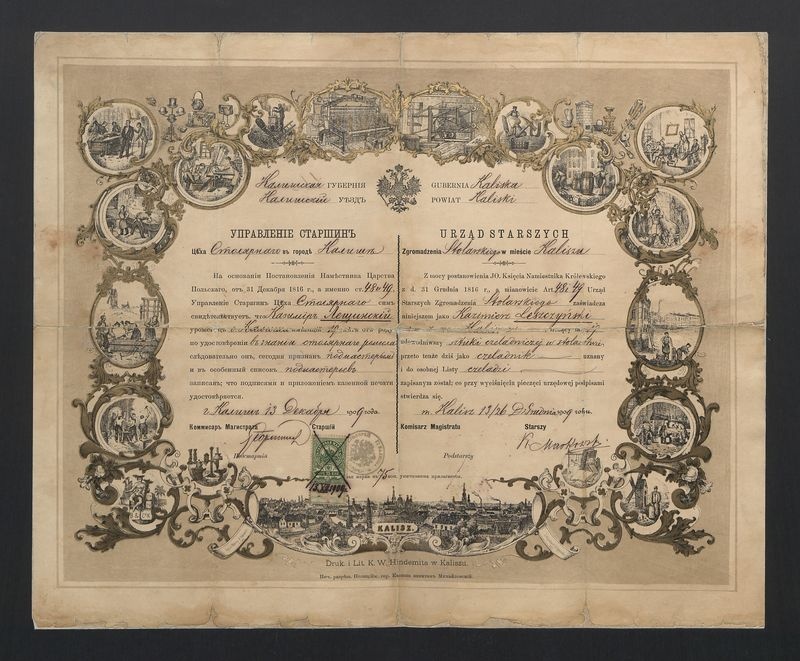 Калишская ГУБЕРНІЯ
Калишскій УѢЗДЪ
УПРАВЛЕНІЕ СТАРШИНЪ
Цѣха Столярнаго въ городѣ Калишѣ
На основаніи Постановленія Намѣстника Царства
Польскаго, отъ 31 Декабря 1816 г., а именно ст. 48 и 49.
Управленіе Старшинъ Цѣха Столярнаго симъ
свидѣтельствуетъ, что Казимірѣ Лещинскій
по удостовѣреніи въ знаніи столярнаго ремесла
слѣдовательно онъ, сегодня признанъ подмастерьемъ
и въ особенный списокъ подмастерьевъ
записанъ; что подписями и приложеніемъ казенной печати
удостовѣряется.
г. Калишъ 13 Декабря 1909 года.
Коммисаръ Магистрата Старшій
Подстаршій
GUBERNIA Kaliska
POWIAT Kaliski
URZĄD STARSZYCH
Zgromadzenia Stolarskiego w mieście Kaliszu
Z mocy postanowienia JO. Księcia Namiestnika Królewskiego
z d. 31 Grudnia 1816 r., a mianowicie Art. 48 i 49 Urząd
Starszych Zgromadzenia Stolarskiego zaświadcza
niniejszem jako Kazimierz Leszczyński
udowodniwszy sztuki czeladniczej w stolarstwie
przeto tenże dziś jako czeladnik uznany
i do osobnej Listy czeladzi
zapisanym został; co przy wyciśnięciu pieczęci urzędowej podpisami
stwierdza się.
m. Kalisz 13/26 Grudnia 1909 roku.
Komisarz Magistratu Starszy
Podstarszy
KALISZ.
Druk. i Lit. K. W. Hindemita w Kaliszu.